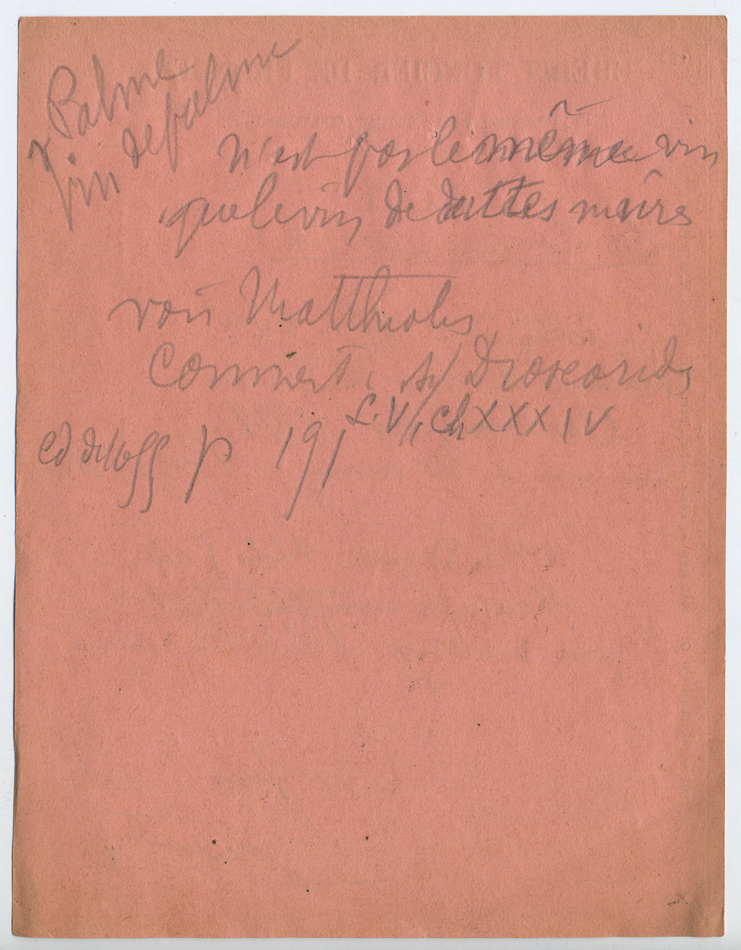 Palme
Vin de palme
N'est pas le même vin
que le vin de dattes mûres
voir Matthiolus
Comment. s/ Dioscorides
L. V, ch XXXIV
ed p 191